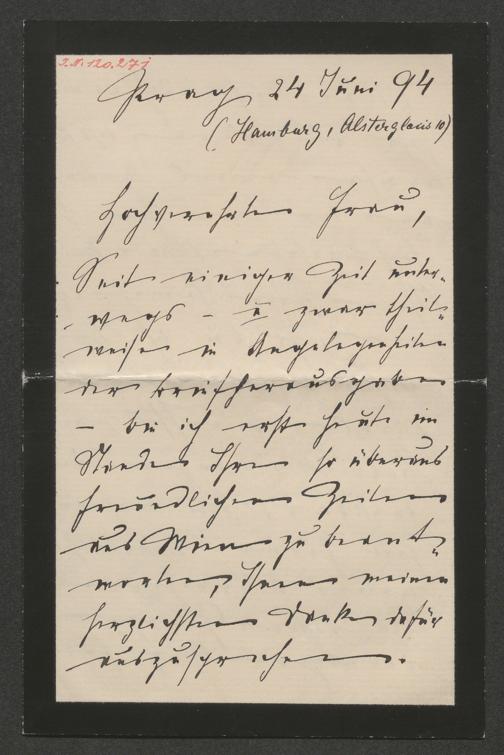 I.N. 120.271
Prag 24 Juni 94
(Hamburg, Alsterglacis 10)
Hochverehrte Frau,
Seit einiger Zeit unter-
wegs – u zwar theil-
weise in Angelegenheiten
der Briefherausgabe
– bin ich erst heute im
Stande Ihre so überaus
freundlichen Zeilen
aus Wien zu beant-
worten, Ihnen meinen
herzlichsten Dank dafür
auszusprechen.